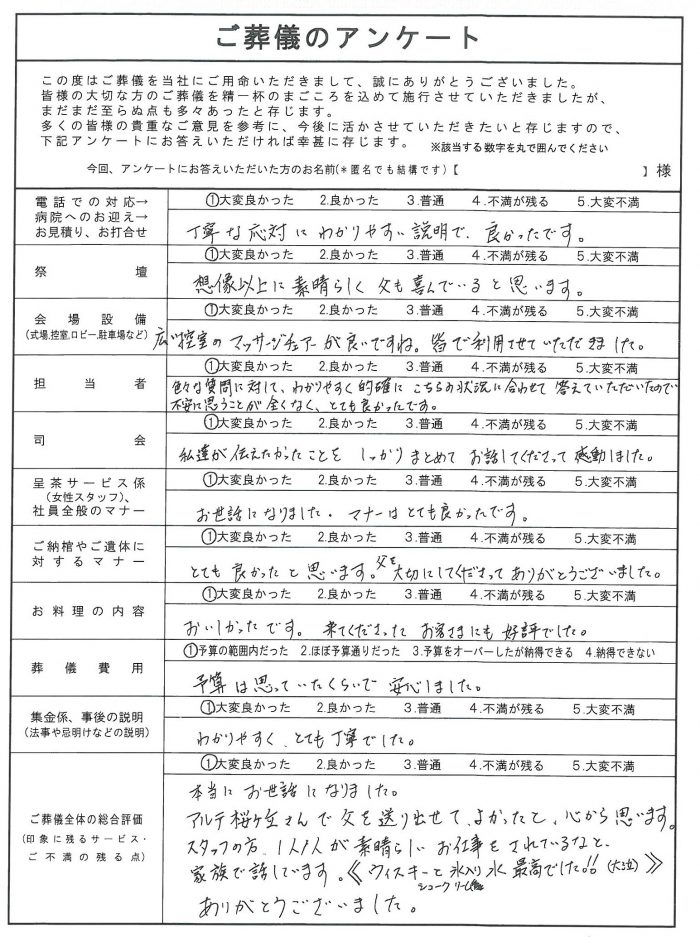 ご葬儀のアンケート
この度はご葬儀を当社にご用命いただきまして、誠にありがとうございました。
皆様の大切な方のご葬儀を精一杯のまごころを込めて施行させていただきましたが、
まだまだ至らぬ点も多々あったと存じます。
多くの皆様の貴重なご意見を参考に、今後に活かさせていただきたいと存じますので、
下記アンケートにお答えいただければ幸甚に存じます。 ※該当する数字を丸で囲んでください
今回、アンケートにお答えいただいた方のお名前(*匿名でも結構です)【 】様
電話での対応→
病院へのお迎え→
お見積り、お打合せ
①大変良かった 2.良かった 3.普通 4.不満が残る 5.大変不満
丁寧な応対にわかりやすい説明で、良かったです。
祭壇
①大変良かった 2.良かった 3.普通 4.不満が残る 5.大変不満
想像以上に素晴らしく父も喜んでいると思います。
会場設備
(式場,控室,ロビー,駐車場など)
①大変良かった 2.良かった 3.普通 4.不満が残る 5.大変不満
広い控室のマッサージチェアーが良いですね。皆で利用させていただきました。
担当者
①大変良かった 2.良かった 3.普通 4.不満が残る 5.大変不満
色々な質問に対して、わかりやすく的確にこちらの状況に合わせて答えていただいたので
不安に思うことが全くなく、とても良かったです。
司会
①大変良かった 2.良かった 3.普通 4.不満が残る 5.大変不満
私達が伝えたかったことをしっかりまとめてお話してくださって感動しました。
呈茶サービス係
(女性スタッフ)、
社員全般のマナー
①大変良かった 2.良かった 3.普通 4.不満が残る 5.大変不満
お世話になりました。マナーはとても良かったです。
ご納棺やご遺体に
対するマナー
①大変良かった 2.良かった 3.普通 4.不満が残る 5.大変不満
とても良かったと思います。父を大切にしてくださってありがとうございました。
お料理の内容
①大変良かった 2.良かった 3.普通 4.不満が残る 5.大変不満
おいしかったです。来てくださったお客さまにも好評でした。
葬儀費用
①予算の範囲内だった 2.ほぼ予算通りだった 3.予算をオーバーしたが納得できる 4.納得できない
予算は思っていたくらいで安心しました。
集金係、事後の説明
(法事や忌明けなどの説明)
①大変良かった 2.良かった 3.普通 4.不満が残る 5.大変不満
わかりやすく、とても丁寧でした。
ご葬儀全体の総合評価
(印象に残るサービス・
ご不満の残る点)
①大変良かった 2.良かった 3.普通 4.不満が残る 5.大変不満
本当にお世話になりました。
アルテ桜ヶ丘さんで父を送り出せて、よかったと、心から思います。
スタッフの方、1人1人が素晴らしいお仕事をされているなと、
家族で話しています。《ウィスキーと氷入り水 最高でした!!(大泣)》
シュークリーム
ありがとうございました。